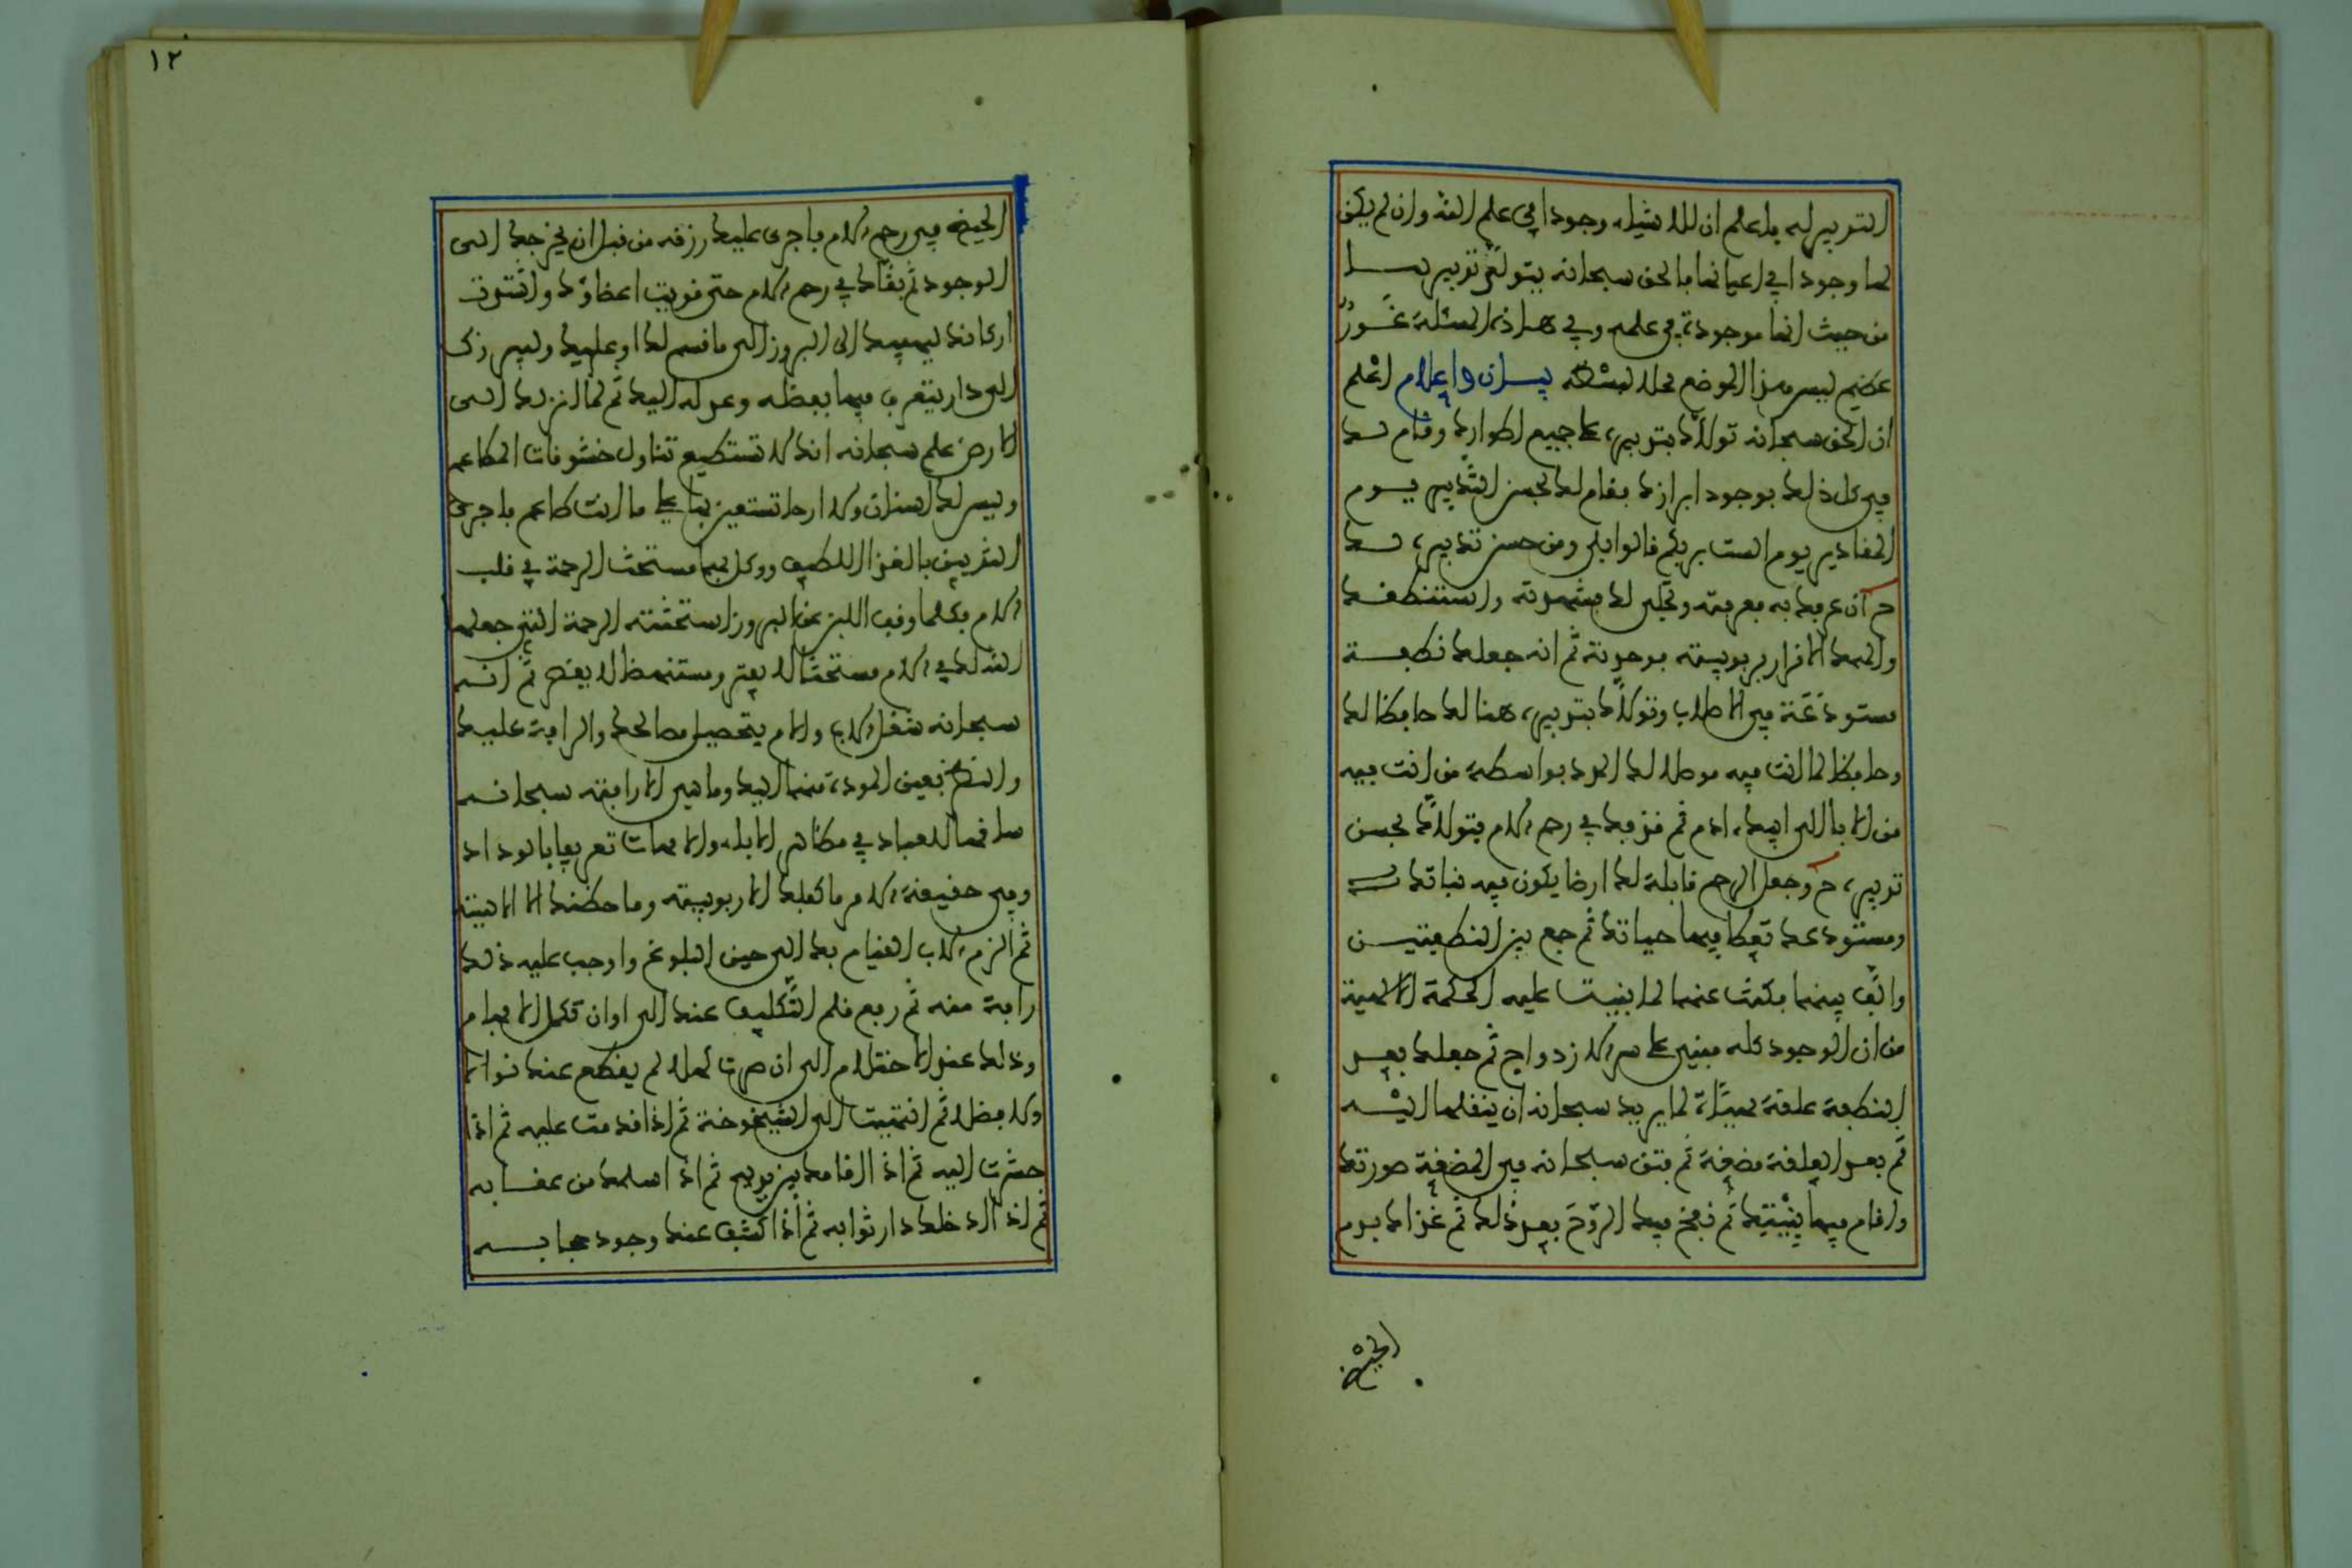 التدبير له فاعلم ان للاشياء وجودا في علم الله وان لم يكن
لها وجودا في اعيانها فالحق سبحانه يتولى تدبيرها
من حيث انها موجودة في علمه وفي هاذه المسئلة غور
عظيم ليس هذا الموضع محلا لبسطه بيان واعلام اعلم
ان الحق سبحانه تولاك بتدبيره على جميع اطوارك وقام لك
في كل ذلك بوجود ابرازك فقام لك بحسن التدبير يوم
المقادير يوم الست بربكم قالوا بلى ومن حسن تدبيره لك
ح ان عرفك به فعرفته وتجلى لك فشهدته واستنطقك
والهمك الاقرار بربوبيته فوحدته ثم انه جعلك نطفة
مستودعة في الاصلاب وتولاك بتدبيره هنالك حافظا لك
وحافظا لما انت فيه موصلا لك المدد بواسطة من انت فيه
من الاباء الى ابيك ادم ثم قذفك في رحم الام فتولاك بحسن
تدبيره ح وجعل الرحم قابلة لك ارضا يكون فيه نباتك
ومستودعك تعطا فيها حياتك ثم جمع بين النطفتين
والف بينهما فكنت عنهما لما بنيت عليه الحكمة الالهية
من ان الوجود كله مبني على سر الازدواج ثم جعلك بعد
النطفة علقة مهيئاة لما يريد سبحانه ان ينقلها اليه
ثم بعد العلقة مضغة ثم فتق سبحانه في المضغة صورتك
واقام فيها بنيتك ثم نفخ فيك الروح بعد ذلك ثم غذاك بدم
الحيض
١٢
الحيض في رحم الام فاجرى عليك رزقه من قبل ان يخرجك الى
الوجود ثم بقاك في رحم الام حتى قويت اعضاؤك واشتدت
اركانك ليهيئك الى البروز الى ما قسم لك او عليك وليبرزك
الى دار يتعرف فيها بفضله وعدله اليك ثم لما انزلك الى
الارض علم سبحانه انك لا تستطيع تناول خشونات المطاعم
وليس لك اسنان ولا ارحا تستعين بها على ما انت طاعم فاجرى
الثديين بالغذا اللطيف ووكل بهما مستحث الرحمة في قلب
الام فكلما وقف اللبن عن البروز استحثته الرحمة التي جعلها
الله لك في الام مستحثا لا يفتر ومستنهظا لا يقصر ثم انه
سبحانه شغل الاب والام بتحصيل مصالحك والرافة عليك
والنظر بعين المودة منهما اليك وما هي الا رافته سبحانه
ساقها للعباد في مظاهر الاباء والامهات تعريفا بالوداد
وفي حقيقة الامر ما كفلك الا ربوبيته وما حظنك الا الاهيته
ثم الزم الاب القيام بك الى حين البلوغ واوجب عليه ذلك
رافة منه ثم رفع قلم التكليف عنك الى اوان تكمل الافهام
وذلك عند الاحتلام الى ان صرت كهلا لم يقطع عنك نوالا
ولا فضلا ثم انتهيت الى الشيخوخة ثم اذا قدمت عليه ثم اذا
حشرت اليه ثم اذ اقامك بين يديه ثم اذ اسلمك من عقابه
ثم اذ ادخلك دار ثوابه ثم اذا كشف عنك وجود حجابه